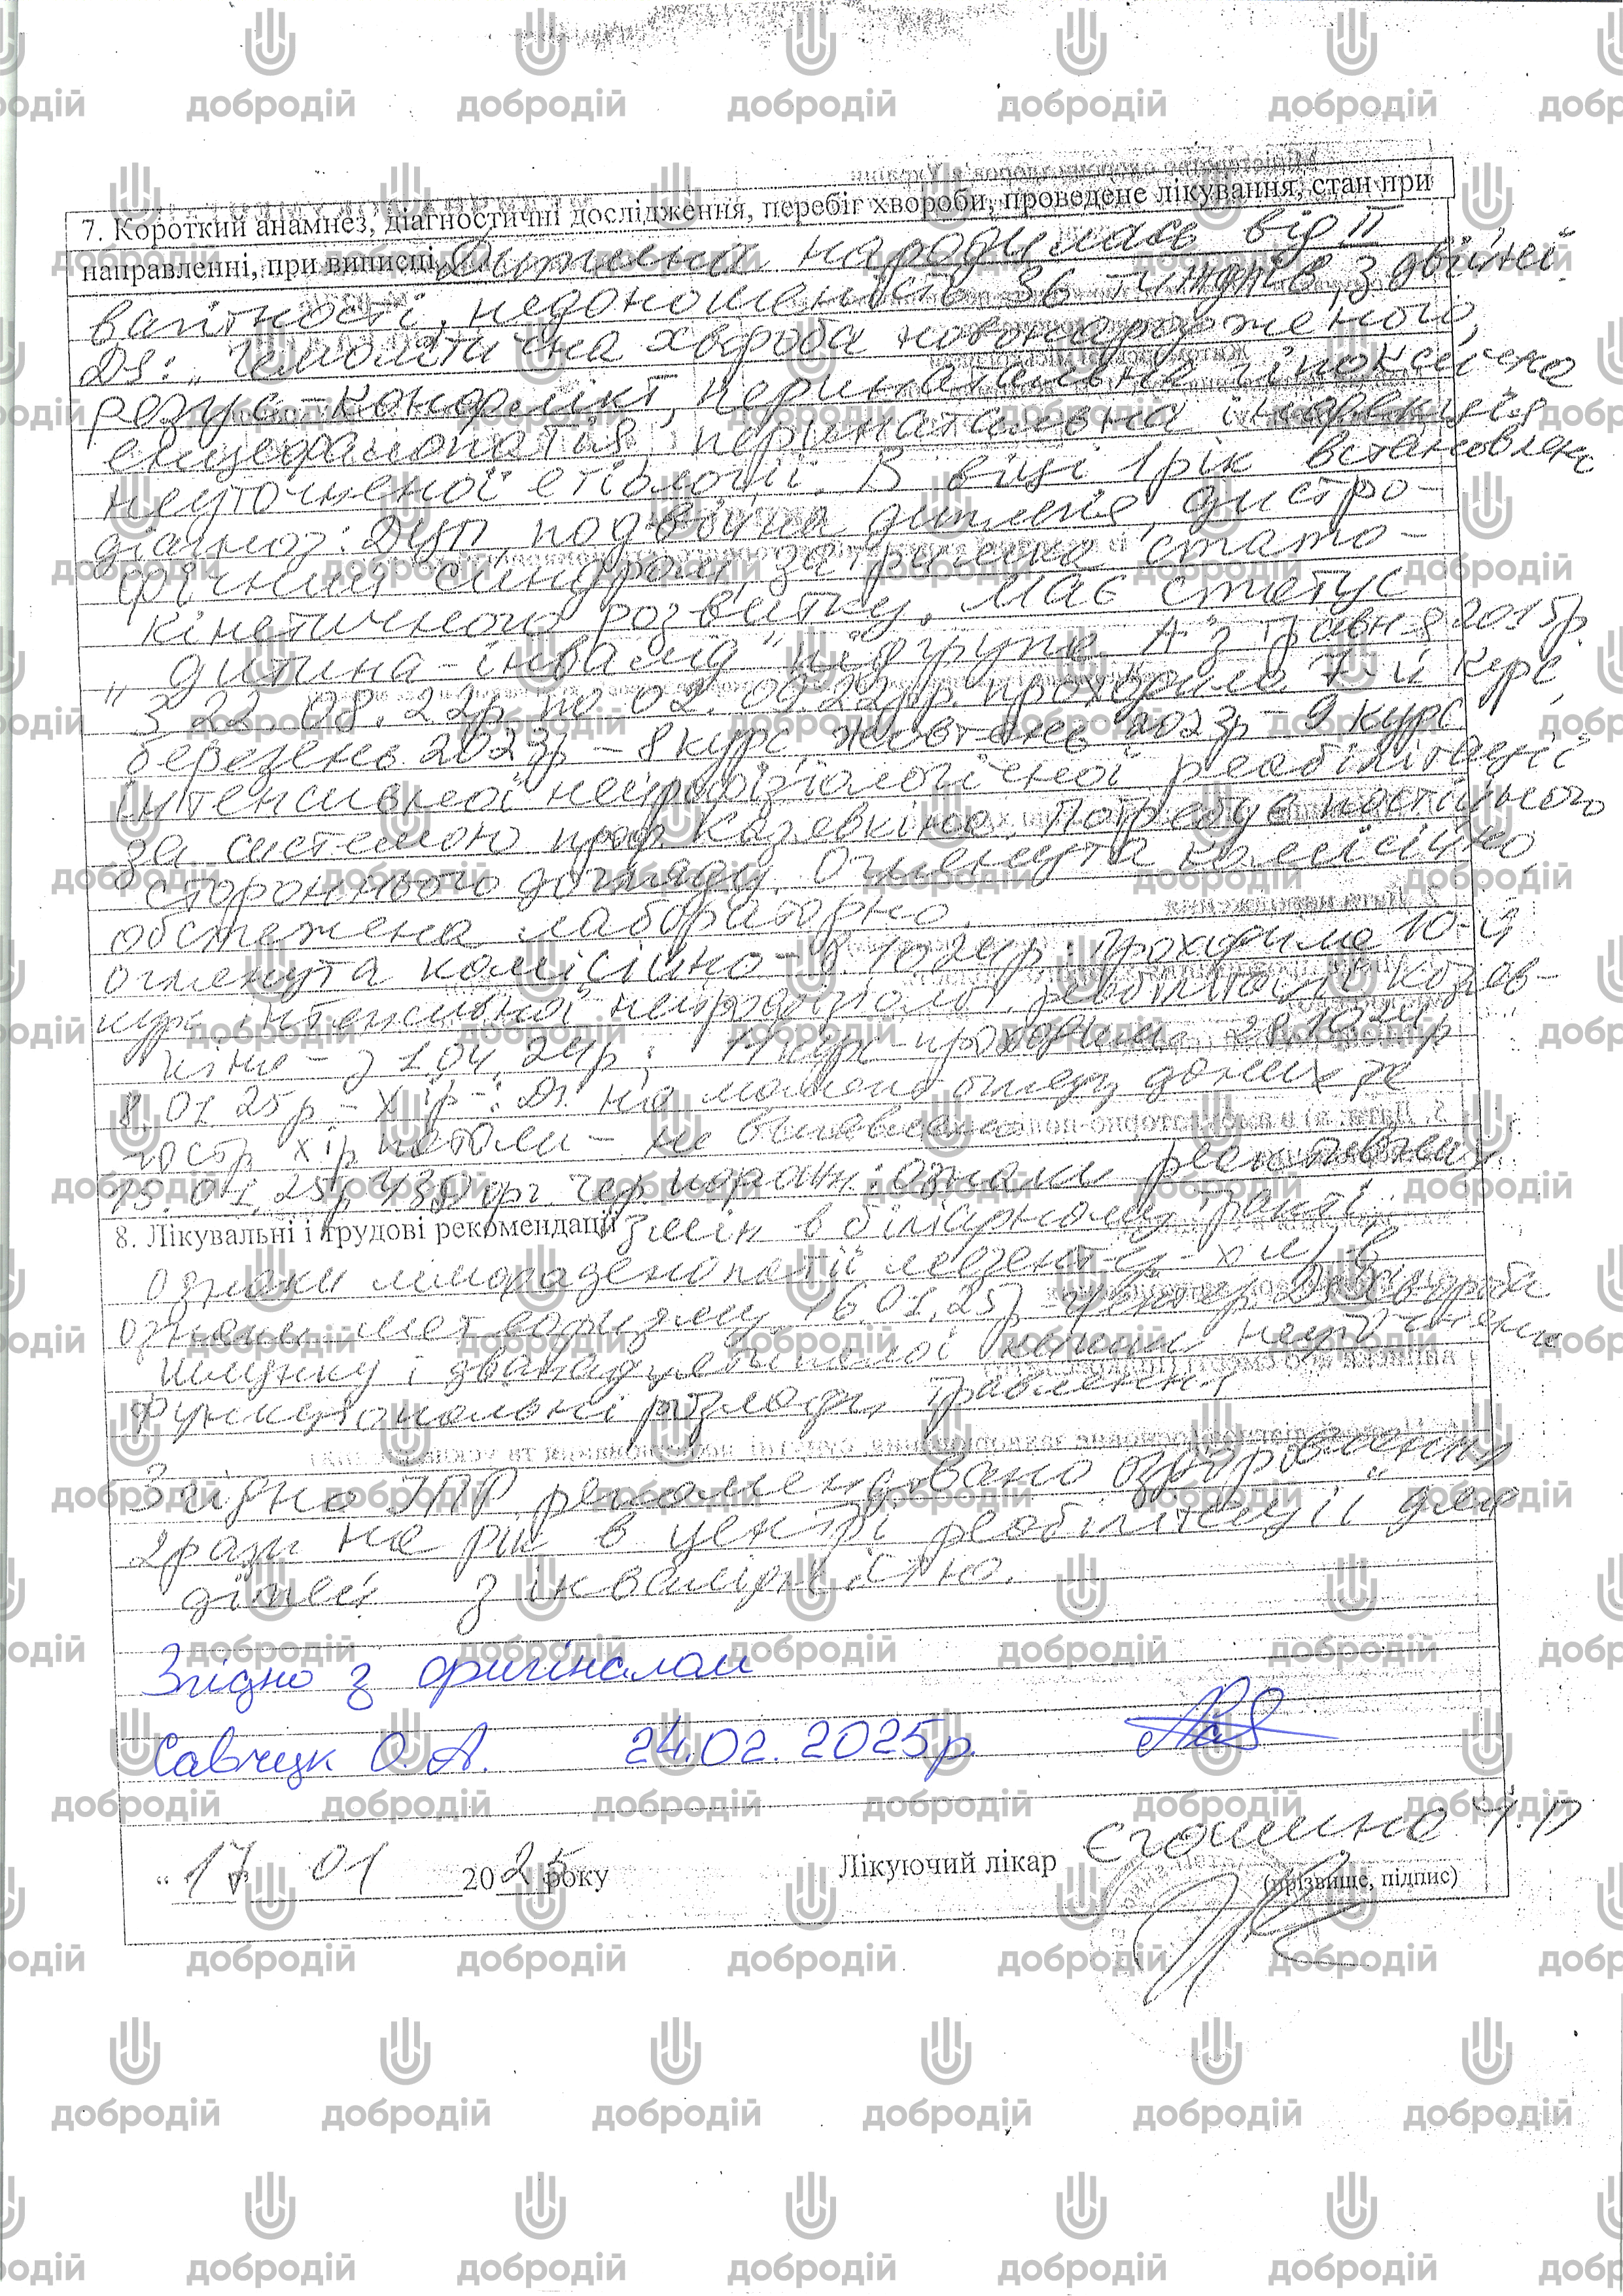 7. Короткий анамнез, діагностичні дослідження, перебіг хвороби, проведене лікування, стан при
направленні, при виписці Дитина народилась від ІІ
вагітності, недоношеність 36 тижнів, з двійні.
DS: "Гемолітична хвороба новонародженого,
резус-конфлікт, перинатальна гіпоксична
енцефалопатія, перинатальна інфекція
неуточненої етіології. В віці 1 рік встановлено
діагноз: ДЦП, подвійна диплегія, дистро-
фічний синдром, затримка стато-
кінетичного розвитку. Має статус
"дитина-інвалід" підгрупа А з травня 2015р.
З 22.08.22р по 02.09.22р. проходила 7-й курс,
березень 2023р – 8 курс, жовтень 2023р – 9 курс
інтенсивної нейрофізіологічної реабілітації
за системою проф. Козявкіна. Потребує постійного
стороннього догляду. Оглянута комісійно,
обстежена лабораторно.
оглянута комісійно – 8.10.24р. Проходила 10-й
курс інтенсивної нейрофізіолог. реабілітації Козяв-
кіна – з 1.04.24р; 11 курс – проходила 28.10.24р
8.01.25р – хір –: Ds. на момент огляду даних за
гостр хір патол – не виявлено
15.01.25р УЗД орг. чер. порожн: ознаки реактивних
8. Лікувальні і трудові рекомендації змін в біліарному тракті,
ознаки лімфаденопатії мезент
ознаки метеоризму. 16.01.25р – Ds Хвороба
шлунку і дванадцятипалої кишки неуточнена
Функціональні розлади травлення
Згідно ІПР рекомендовано оздоровлення
2 рази на рік в центрі реабілітації для
дітей з інвалідністю.
Згідно з оригіналом
Савчук О. А. 24.02.2025р.
"17" 01 2025 року Лікуючий лікар
(прізвище, підпис)
добродій